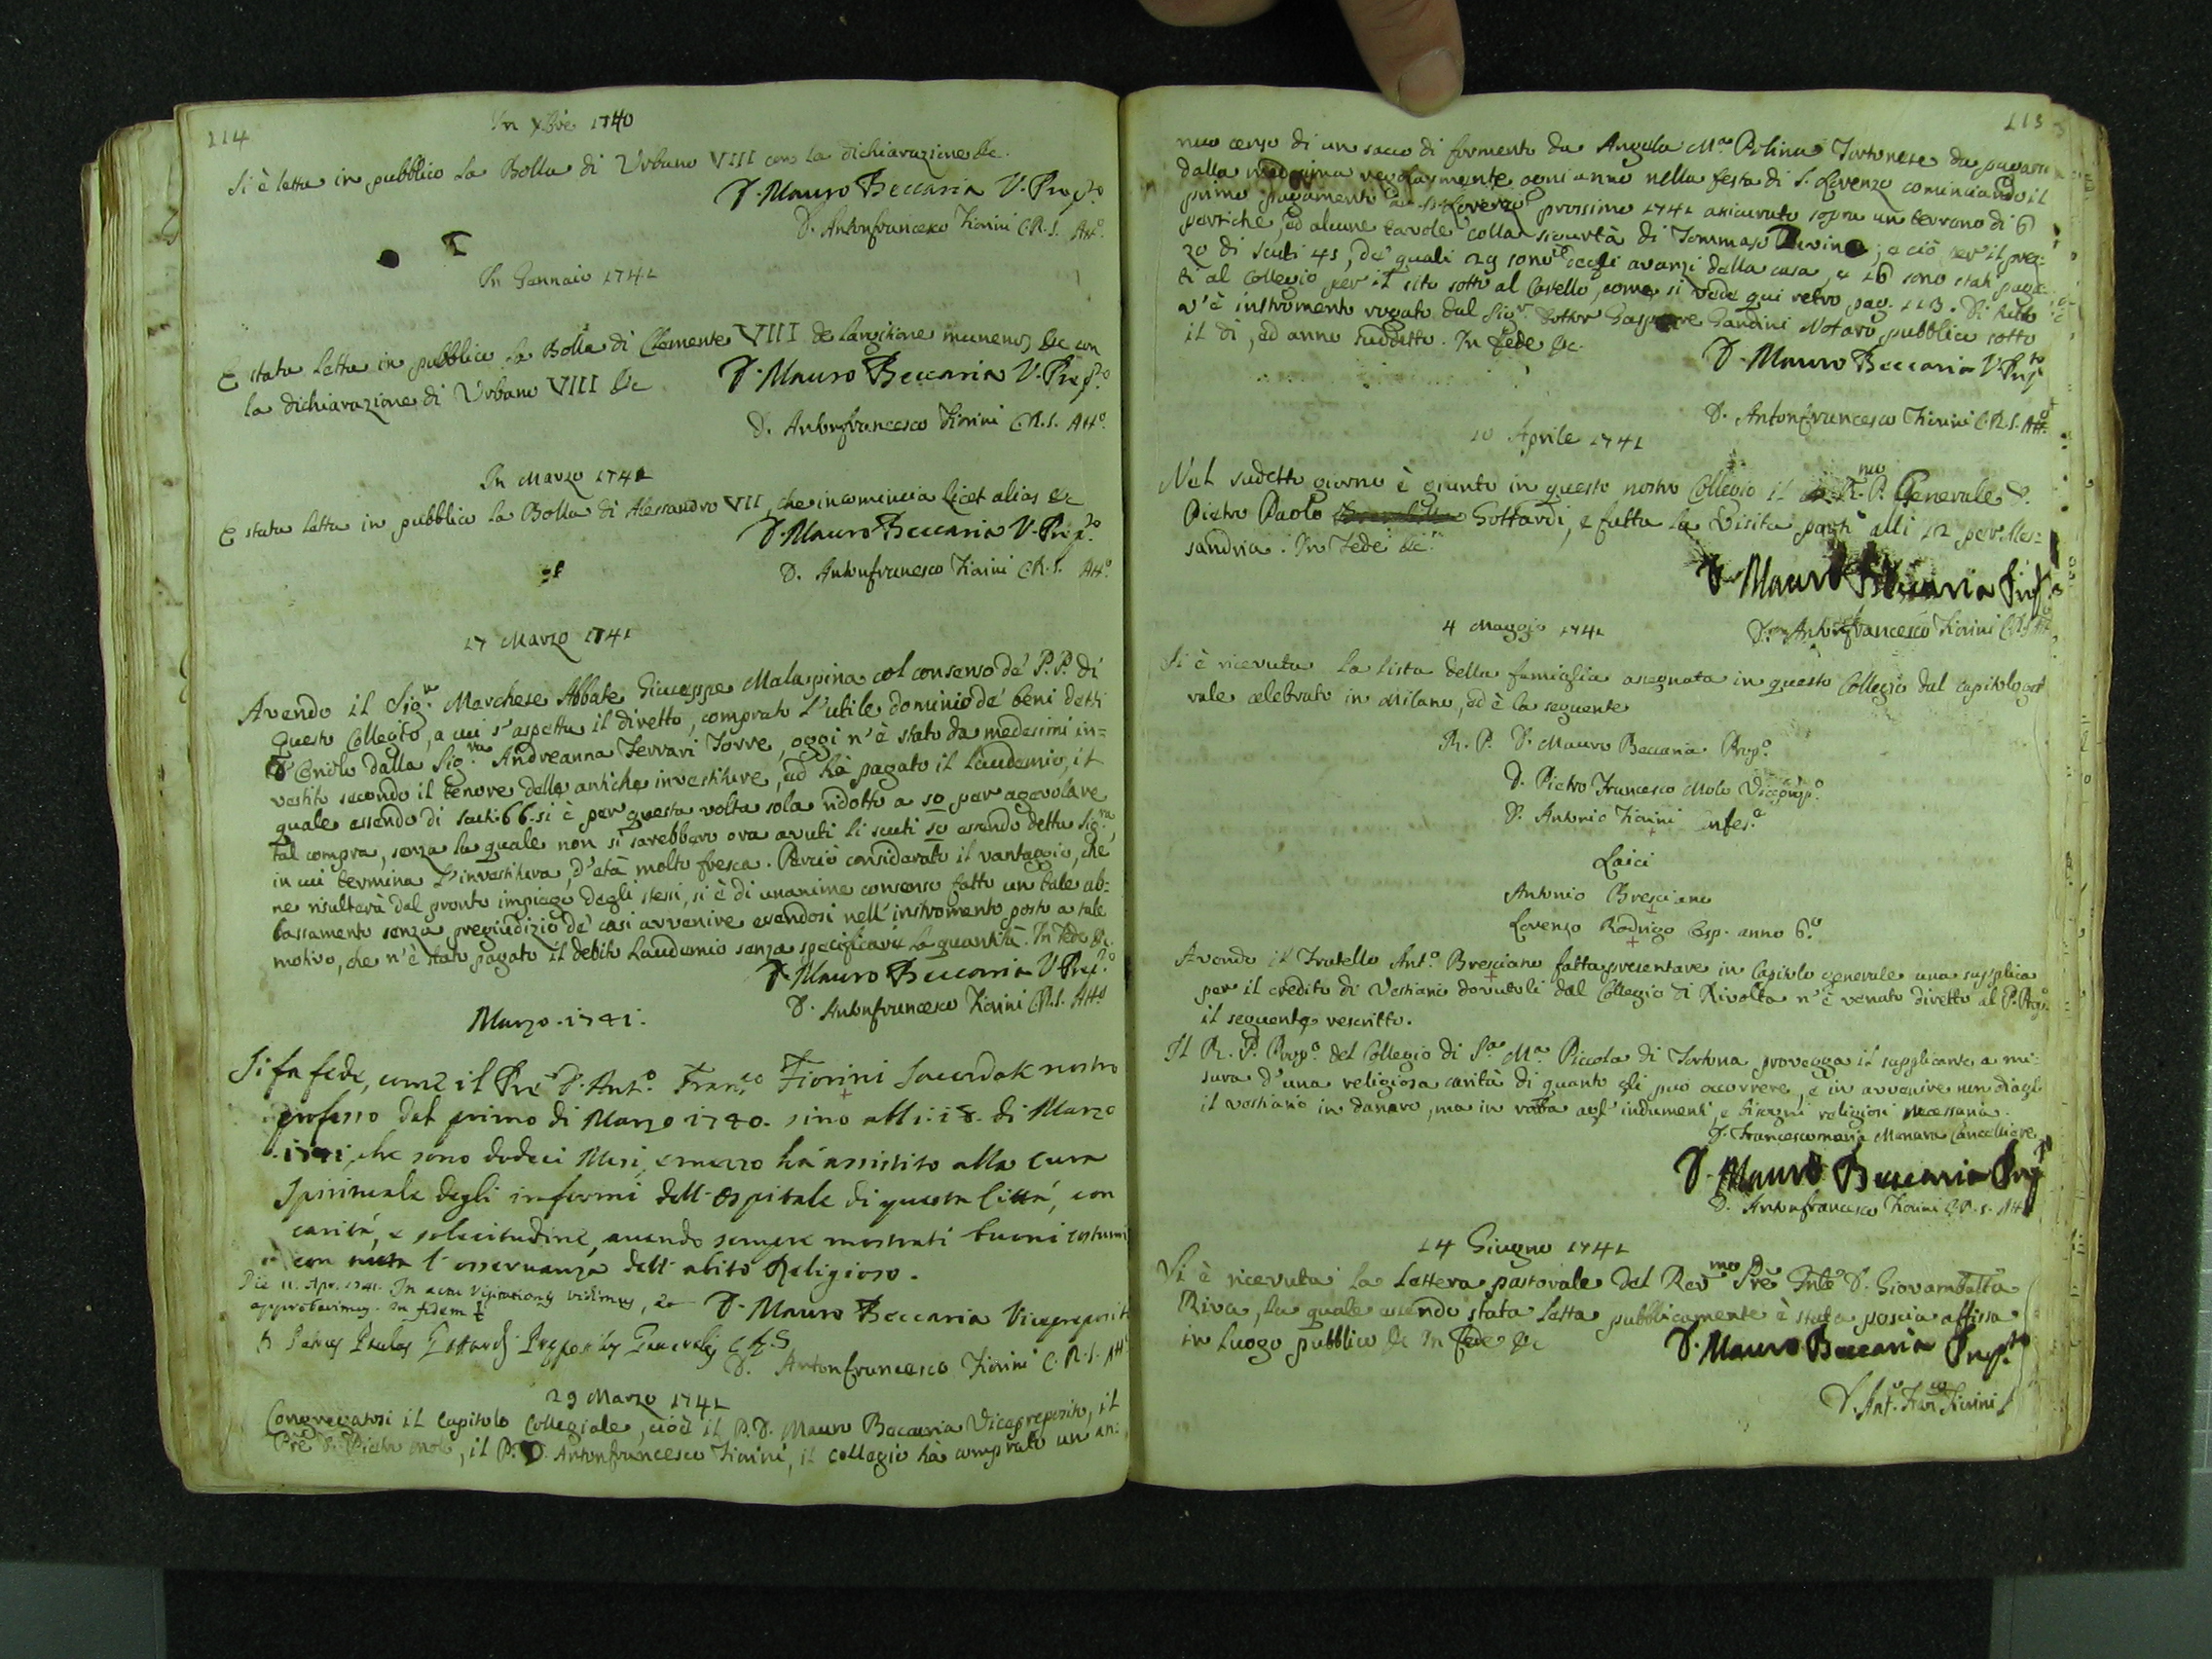 114
In Xbre 1740
Si è letta in pubblico la Bolla di Urbano VIII con la dichiarazione &c.
D. Mauro Beccaria V. Prep.to
D. Antonfrancesco Fiorini C.R.S. Att.o
In Gennaio 1741
E stata letta in pubblico la Bolla di Clemente VIII de largitione munerum &c con
la dichiarazione di Urbano VIII &c
D. Mauro Beccaria V. Prep.to
D. Antonfrancesco Fiorini C.R.S. Att.o
In Marzo 1741
E stata letta in pubblico la Bolla di Alessandro VII, che incomincia licet alias &c
D. Mauro Beccaria V. Prep.to
D. Antonfrancesco Fiorini C.R.S. Att.o
17 Marzo 1741
Avendo il Sig.r Marchese Abbate Giuseppe Malaspina col consenso de' P.P. di
questo Collegio, a cui s'aspetta il diretto, comprato l'utile dominio de' beni detti
dalla Sig.ra Andreanna Ferrari Torre, oggi n'è stato da medesimi in=
vestito secondo il tenore delle antiche investiture, ed hà pagato il laudemio, il
quale essendo di scuti 66. si è per questa volta sola ridotto a 50 per agevolare
tal compra, senza la quale non si sarebbero ora avuti li scuti 50 essendo detta Sig.ra,
in cui termina l'investitura, d'età molto fresca. Perciò considerato il vantaggio, che
ne risulterà dal pronto impiego degli stessi, si è di unanime consenso fatto un tale ab=
bassamento senza pregiudizio de' casi avvenire essendosi nell'instromento posto a tale
motivo, che n'è stato pagato il debito Laudemio senza specificare la quantità. In fede &c.
D. Mauro Beccaria V. Prep.to
D. Antonfrancesco Fiorini C.R.S. Att.o
Marzo. 1741.
Si fa fede, come il Pre D. Ant.o Fran.co Fiorini Sacerdote nostro
professo dal primo di Marzo 1740. sino alli. 18. di Marzo
1741, che sono dodeci Mesi, e mezzo hà assistito alla cura
Spirituale degli infermi dell'Ospitale di questa Città, con
carità, e solecitudine, avendo sempre mostrati buoni costumi
con tutta l'osservanza dell'abito Religioso.
Die 11. Apr. 1741. In actu Visitationis vidimus, &
approbavimus. In fidem &
D. Mauro Beccaria Vicepreposito
D. Petrus Paulus Gottardi Prepositus Generalis C.R.S
D. Antonfrancesco Fiorini C.R.S. Att.o
29 Marzo 1741
Congregatosi il Capitolo Collegiale, cioè il P.D. Mauro Beccaria Vicepreposito, il
Pre D. Pietro Molo, il P.D. Antonfrancesco Fiorini, il collegio hà comprato un an:
115
nuo censo di un sacco di formento da Angela M.a Tortonese da pagarsi
dalla medesima regolarmente ogni anno nella festa di S. Lorenzo cominciando il
primo pagamento a S. Lorenzo prossimo 1741 assicurato sopra un terreno di 6
pertiche, ed alcune tavole colla sicurtà di Tommaso; e ciò per il prez=
zo di scuti 45, de' quali 29 sono degli avanzi della casa, e 16 sono stati paga=
ti al Collegio per il sito sotto al Cavello, come si vede qui retro pag. 113. Di tutto
n'è instromento rogato dal Sig.r Dottor Gaspare Gandini Notaro pubblico sotto
il dì, ed anno suddetto. In fede &c.
D. Mauro Beccaria V. Prep.to
D. Antonfrancesco Fiorini C.R.S. Att.o
10 Aprile 1741
Nel sudetto giorno è giunto in questo nostro Collegio il R.mo P. Generale D.
Pietro Paolo Gottardi, e fatta la Visita partì alli 12 per Ales=
sandria. In Fede &c.
D. Mauro Beccaria Prep.to
4 Maggio 1741
D. Antonfrancesco Fiorini C.R.S. Att.o
Si è ricevuta la lista della famiglia assegnata in questo Collegio dal capitolo gene
rale celebrato in Milano, ed è la seguente
R. P. D. Mauro Beccaria Prep.o
D. Pietro Francesco Molo Viceprep.o
D. Antonio Fiorini Confes.e
Laici
Antonio Bresciano
Lorenzo Rodrigo Osp. anno 6.o
Avendo il Fratello Ant.o Bresciano fatta presentare in Capitolo generale una supplica
per il credito di Vestiario dovutoli dal Collegio di Rivolta n'è venuto diretto al P. Prep.o
il seguente rescritto.
Il R. P. Prep.o del Collegio di S.a M.a Piccola di Tortona provegga il supplicante a mi=
sura d'una religiosa carità di quanto gli può occorrere, e in avvenire non diagli
il vestiario in danaro, ma in robba agl'indumenti, e bisogni religiosi necessaria.
D. Francesco Maria Manara Cancelliere
D. Mauro Beccaria Prep.to
D. Antonfrancesco Fiorini C.R.S. Att.o
14 Giugno 1741
Si è ricevuta la Lettera pastorale del Rev.mo Pre Gnle D. Giovambatta
Riva, la quale essendo stata letta pubblicamente è stata poscia affissa
in luogo pubblico &c In fede &c
D. Mauro Beccaria Prep.to
D. Ant.o Fran.co Fiorini